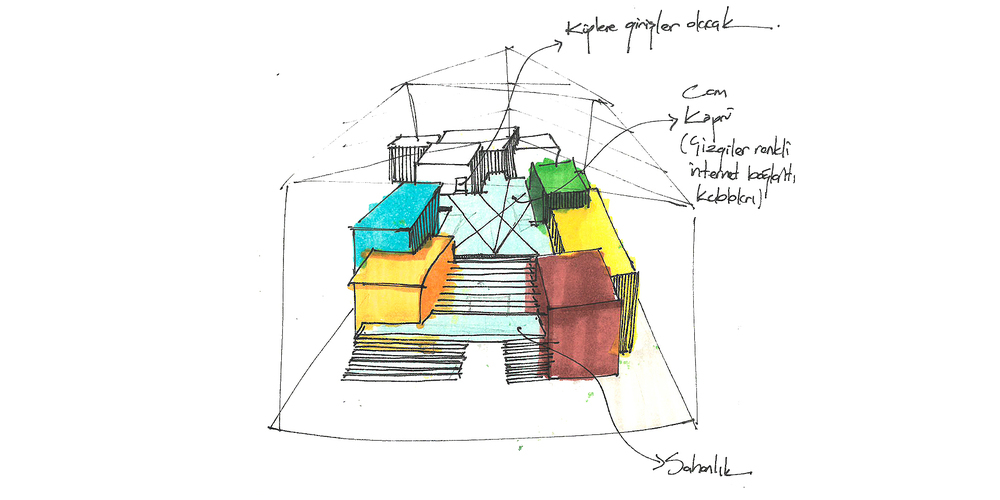 Küplere girişler olacak
Cam
Köprü
(Çizgiler renkli
internet bağlantı
kabloları)
Sahanlık